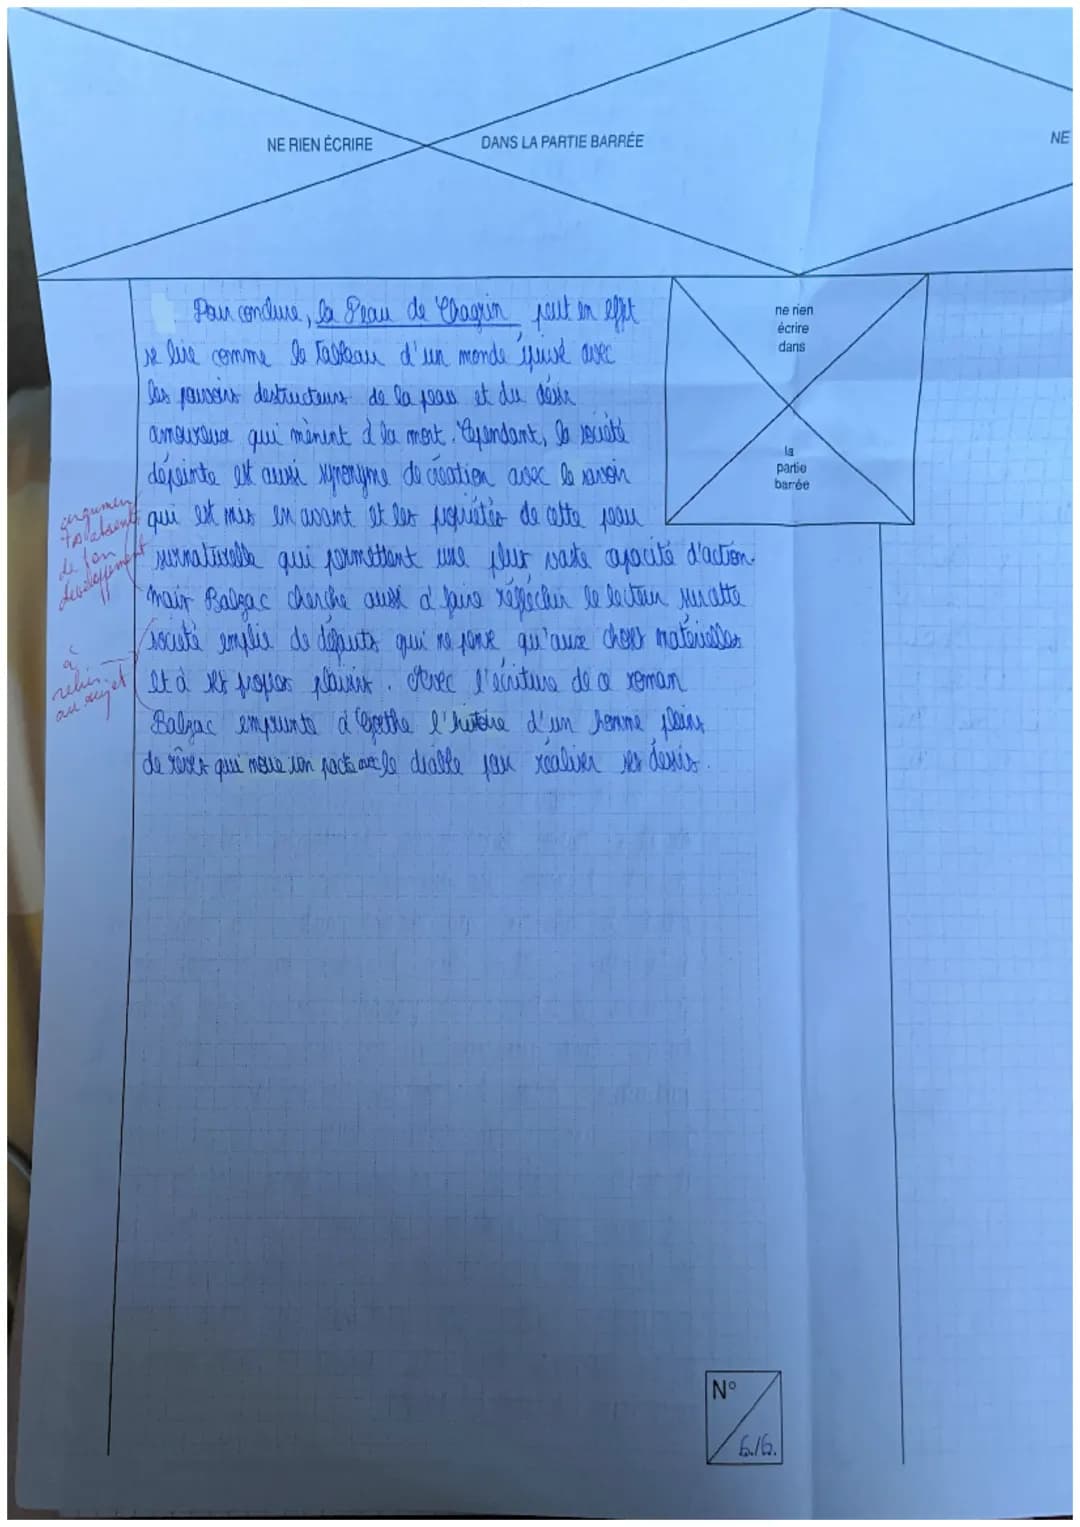 NE RIEN ÉCRIRE DANS LA PARTIE BARRÉE
NE
ne rien
écrire
dans
la
partie
barrée
Pour conclure, la Peau de Chagrin peut en effet
se lire comme le tableau d'un monde épuisé avec
les pouvoirs destructeurs de la peau et du désir
amoureux qui mènent à la mort. Cependant, la société
dépeinte est aussi synonyme de création avec le savoir
qui est mis en avant et les propriétés de cette peau
surnaturelle qui permettent une plus vaste capacité d'action.
Mais Balzac cherche aussi à faire réfléchir le lecteur sur cette
société emplie de défauts qui ne pense qu'aux choses matérielles
et à ses propres plaisirs. Avec l'écriture de ce roman
Balzac emprunte à Goethe l'histoire d'un homme pleins
de rêves qui noue un pacte avec le diable pour réaliser ses désirs.
argumen
ts absents
de ton
développement
à
relier
au sujet
N°
6/6.